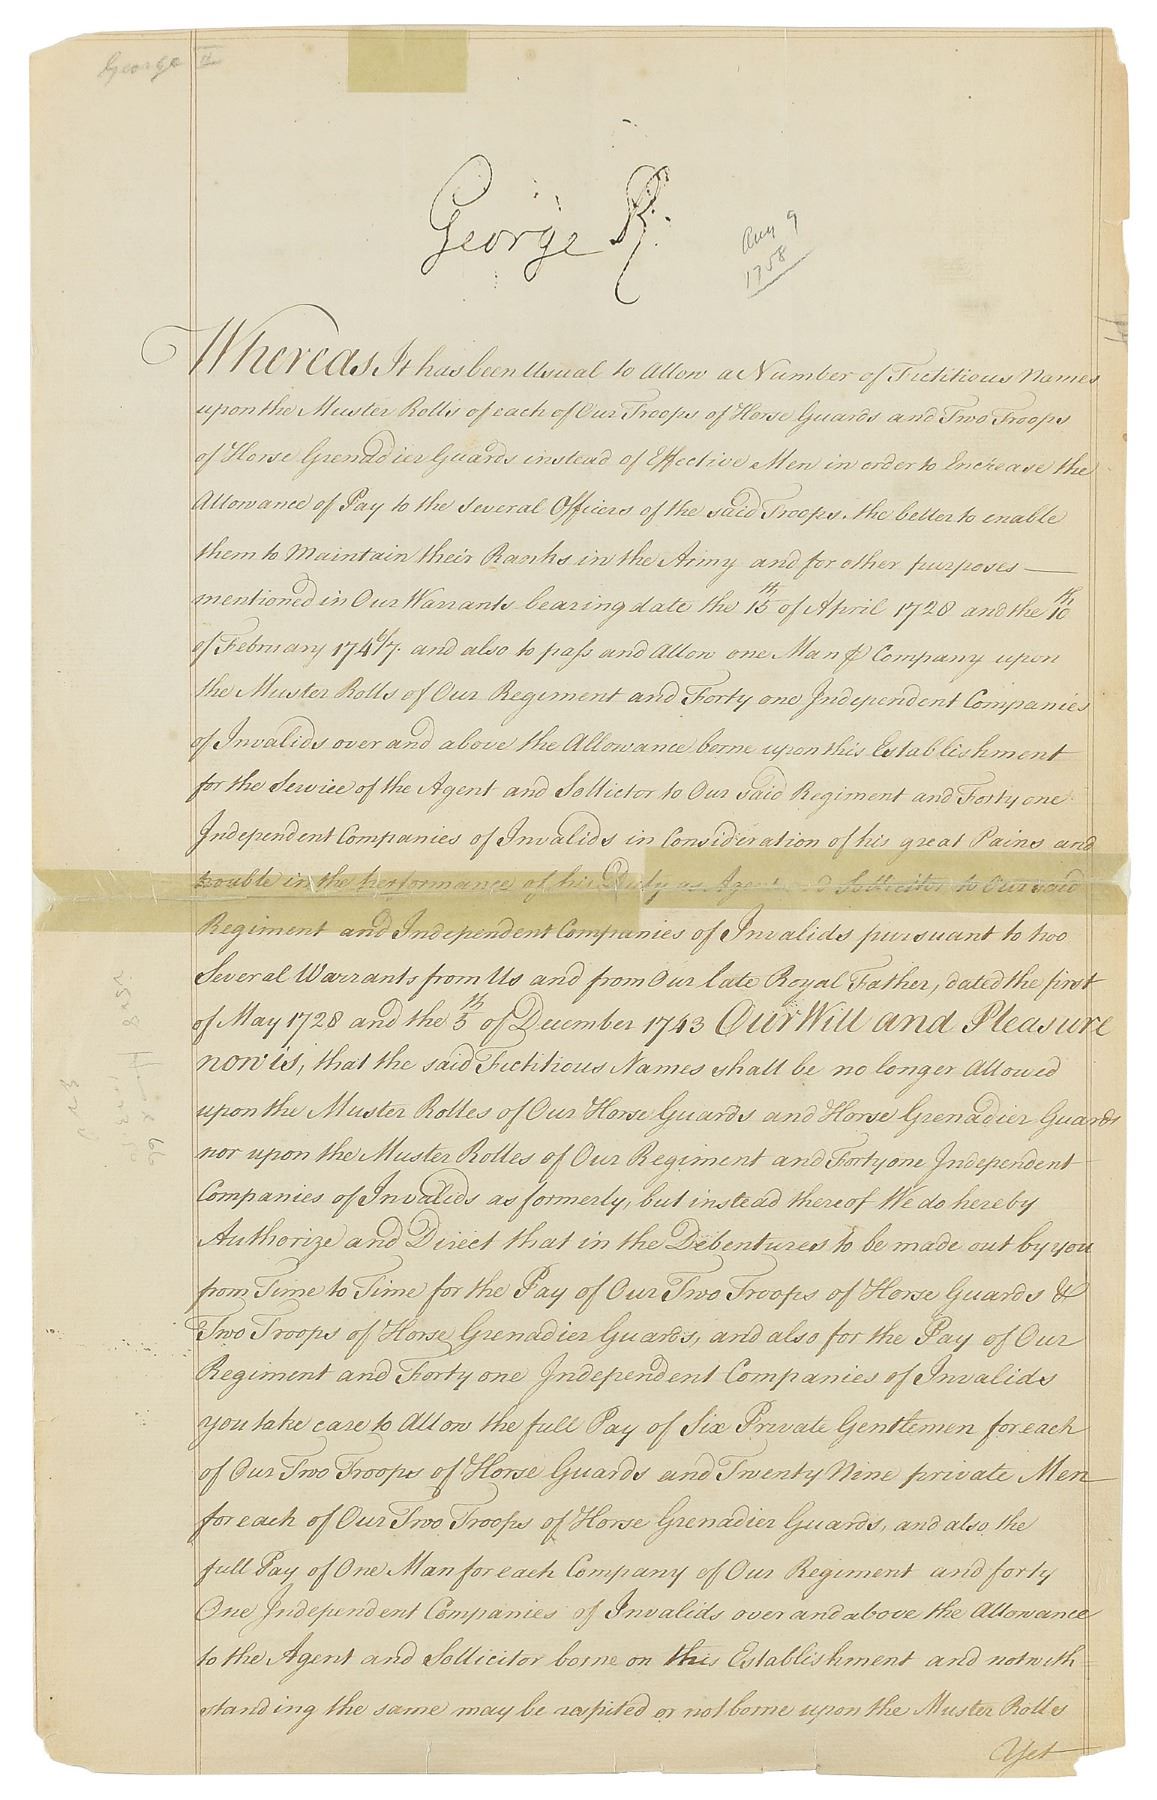 George II
George R.
Aug 9
1758
Whereas It has been Usual to Allow a Number of Fictitious Names
upon the Muster Rolls of each of Our Troops of Horse Guards and Two Troops
of Horse Grenadier Guards instead of Effective Men in order to Encrease the
Allowance of Pay to the Several Officers of the said Troops, the better to enable
them to Maintain their Ranks in the Army and for other purposes —
mentioned in Our Warrants bearing date the 15th of April 1728 and the 10th
of February 1746/7. and also to pass and Allow one Man ⅌ Company upon
the Muster Rolls of Our Regiment and Forty one Independent Companies
of Invalids over and above the Allowance borne upon this Establishment
for the Service of the Agent and Sollicitor to Our said Regiment and Forty one
Independent Companies of Invalids in Consideration of his great Pains and
trouble in the performance of his Duty as Agent and Sollicitor to Our said
Regiment and Independent Companies of Invalids pursuant to two
Several Warrants from Us and from Our late Royal Father, dated the first
of May 1728 and the 5th of December 1743 Our Will and Pleasure
now is, that the said Fictitious Names shall be no longer Allowed
upon the Muster Rolles of Our Horse Guards and Horse Grenadier Guards
nor upon the Muster Rolles of Our Regiment and Forty one Independent
Companies of Invalids as formerly, but instead thereof We do hereby
Authorize and Direct that in the Debentures to be made out by you
from Time to Time for the Pay of Our Two Troops of Horse Guards &
Two Troops of Horse Grenadier Guards, and also for the Pay of Our
Regiment and Forty one Independent Companies of Invalids
you take care to Allow the full Pay of Six Private Gentlemen for each
of Our Two Troops of Horse Guards and Twenty Nine private Men
for each of Our Two Troops of Horse Grenadier Guards, and also the
full Pay of One Man for each Company of Our Regiment and forty
One Independent Companies of Invalids over and above the Allowance
to the Agent and Sollicitor borne on this Establishment and notwith
standing the same may be respited or not borne upon the Muster Rolls
Yet